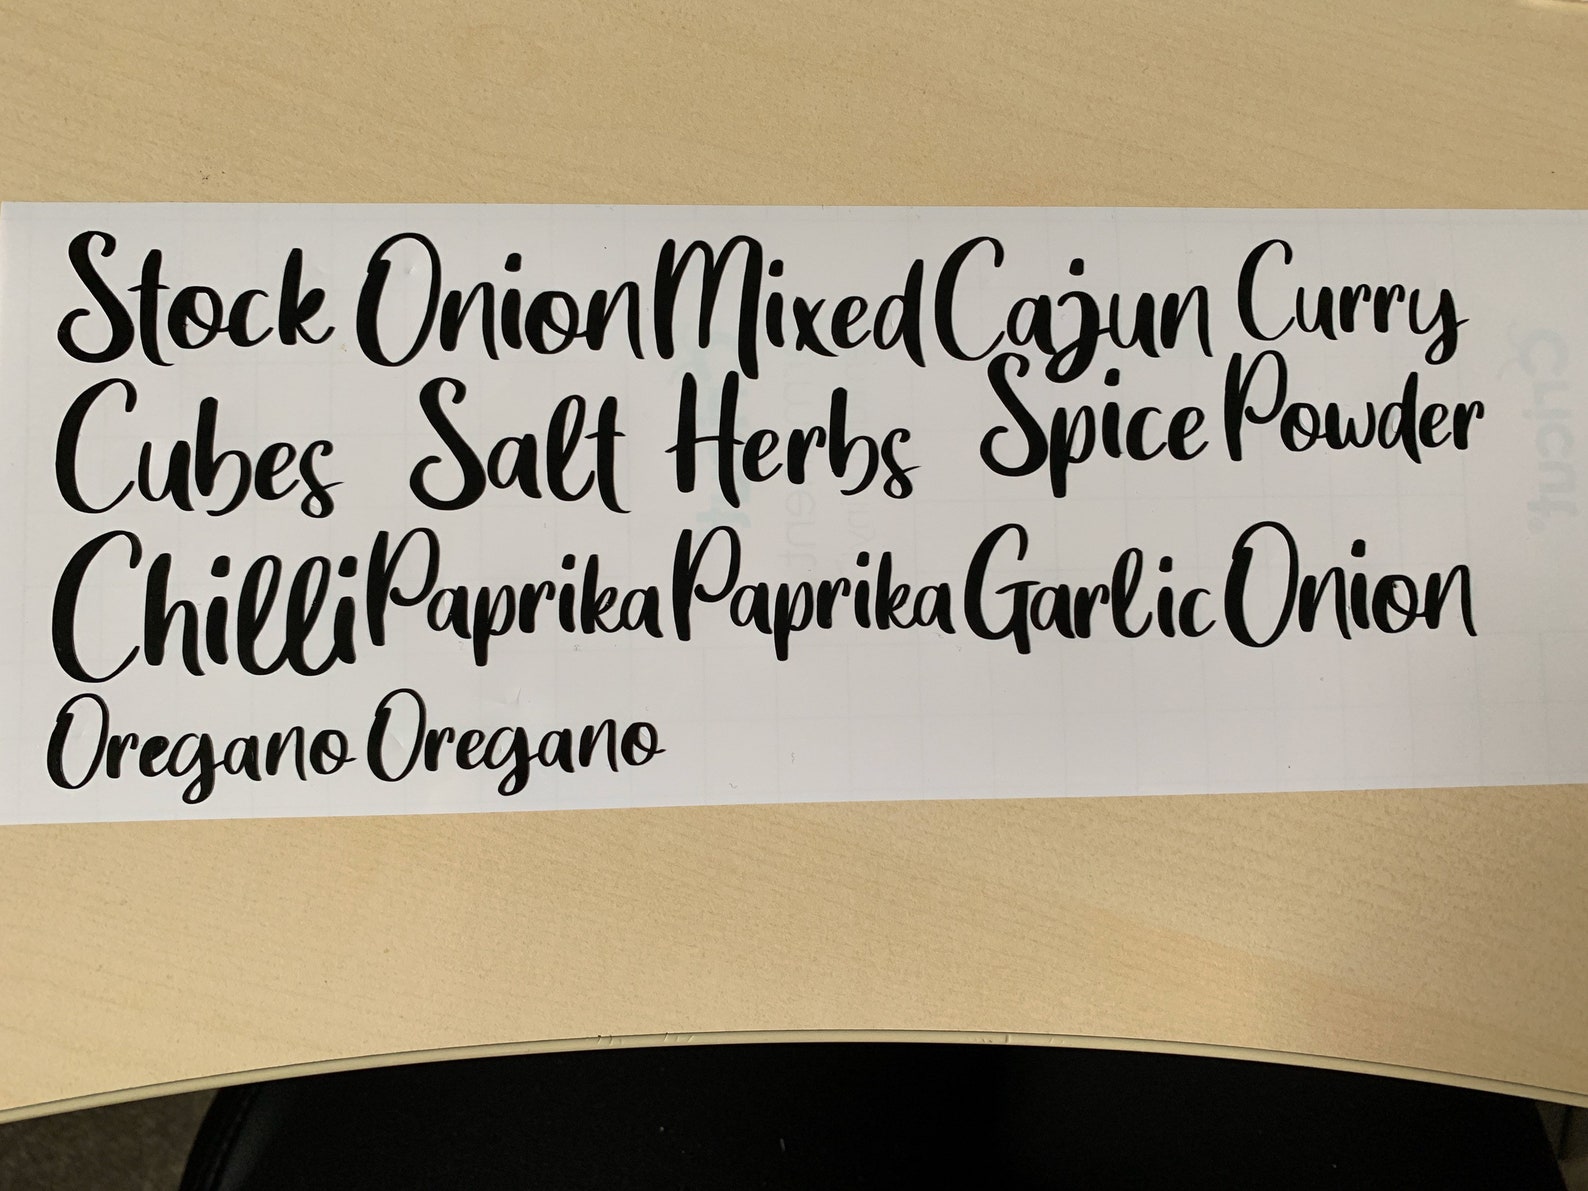 Stock Onion Mixed Cajun Curry
Cubes Salt Herbs Spice Powder
Chilli Paprika Paprika Garlic Onion
Oregano Oregano
cricut